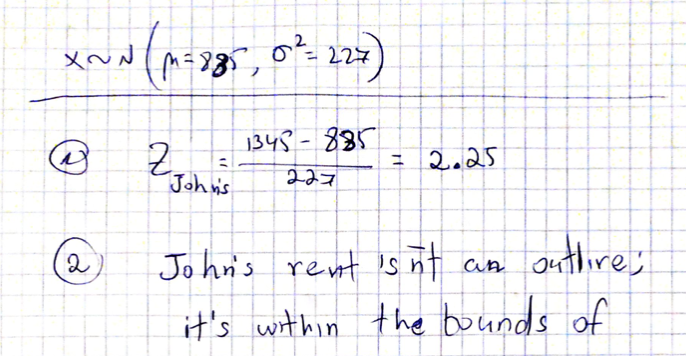 X ~ N (μ = 885, σ² = 227)
① Z John's = 1345 - 885 / 227 = 2.25
② John's rent isn't an outlire;
it's within the bounds of